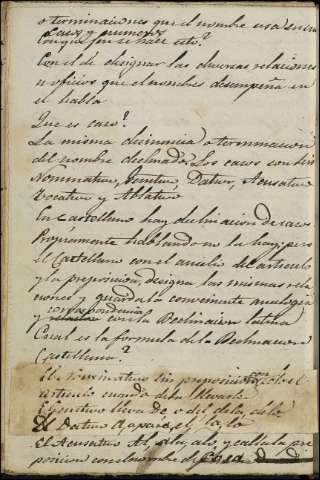 o terminaciones que el nombre usa en sus
casos y numeros
Con que fin se hace esto?
Con el de designar las diversas relaciones
u oficios que el nombre desempeña en
el habla
Que es caso?
La misma diferencia o terminacion
del nombre declinado. Los casos son seis
Nominativo, Genitivo Dativo, Acusativo
Vocativo y Ablativo
En Castellano hay declinacion de casos
Propiamente hablando no la hay; pero
el Castellano con el aucilio del articulo
y la preposicion, designa las mismas rela
ciones y guarda la conveniente analogia
y correspondencia con la Declinacion latina
Cual es la formula de la Declinacion
Castellana?
El Nominativo sin preposicion con el
articulo cuando deba llevarle
El genitivo lleva de, o del, de la, de lo
El Dativo A, o para, el, la, lo
El Acusativo Al, a la, a lo, y calla la pre
posicion con el nombre de